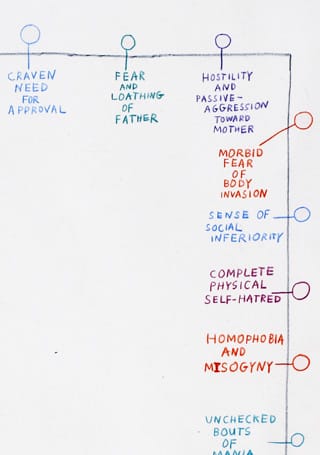 CRAVEN
NEED
FOR
APPROVAL
FEAR
AND
LOATHING
OF
FATHER
HOSTILITY
AND
PASSIVE-
AGGRESSION
TOWARD
MOTHER
MORBID
FEAR
OF
BODY
INVASION
SENSE OF
SOCIAL
INFERIORITY
COMPLETE
PHYSICAL
SELF-HATRED
HOMOPHOBIA
AND
MISOGYNY
UNCHECKED
BOUTS
OF
MANIA